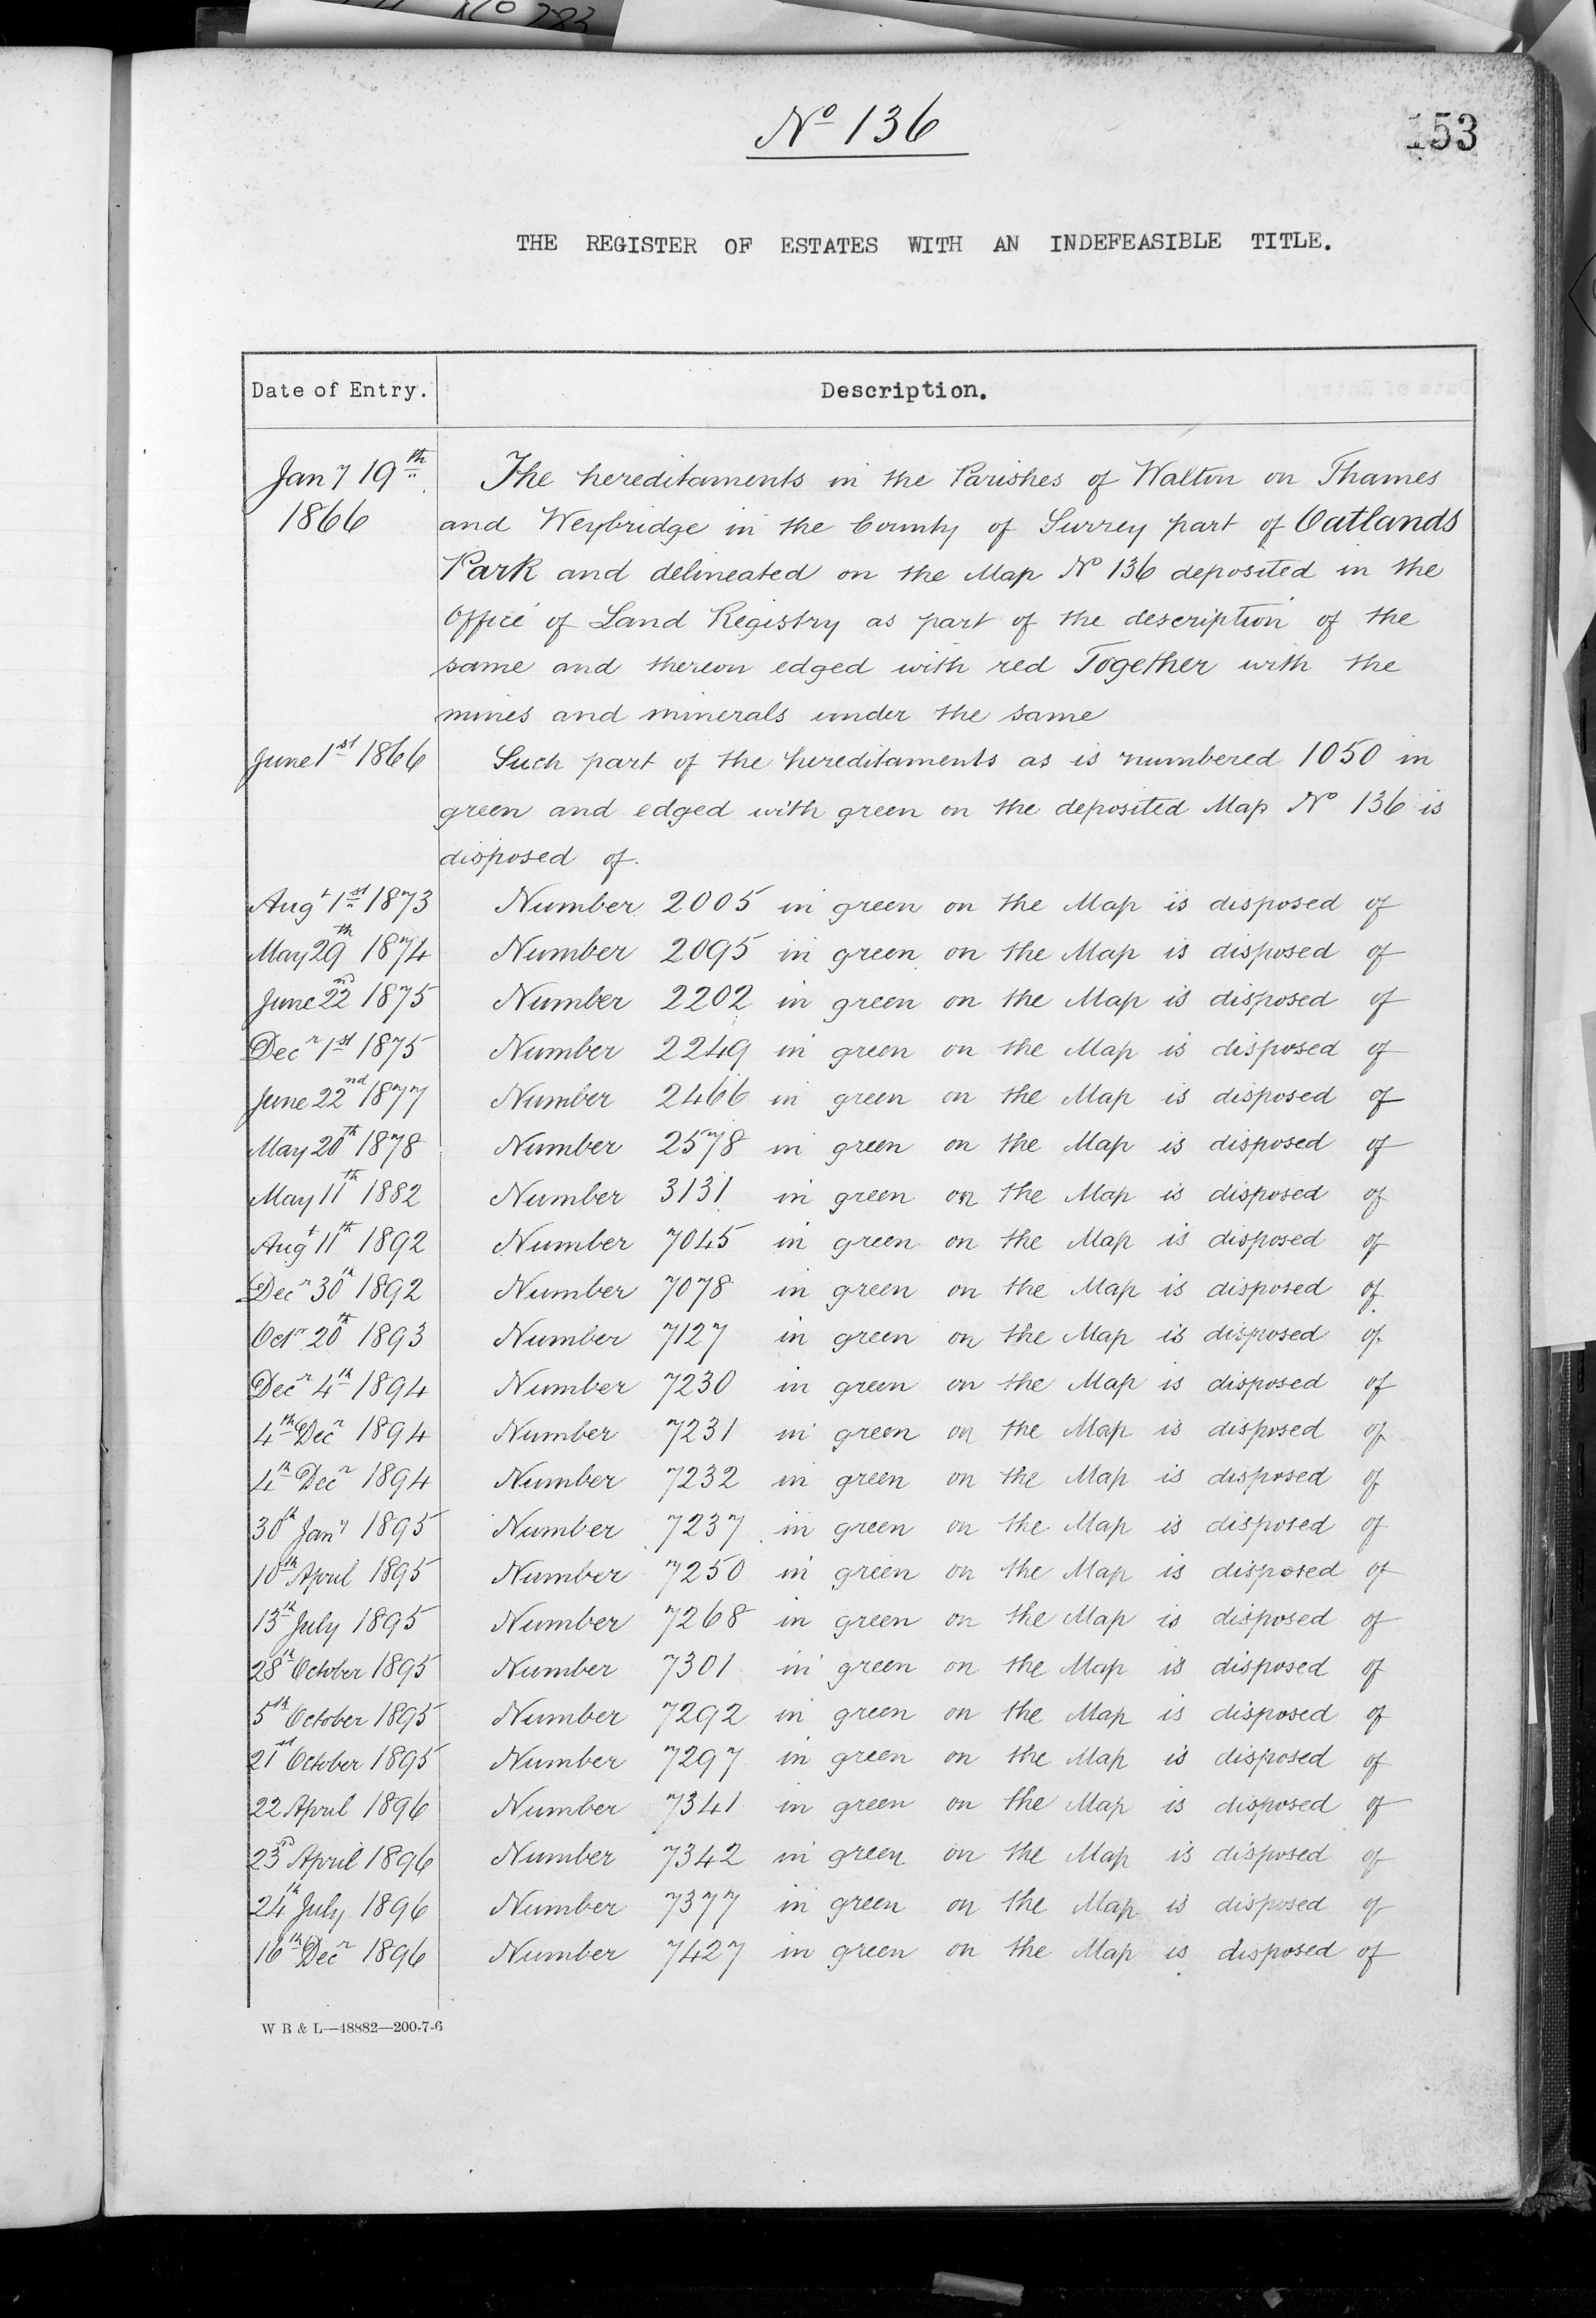 No 283
No 136
153
THE REGISTER OF ESTATES WITH AN INDEFEASIBLE TITLE.
Date of Entry. Description.
Jany 19th The hereditaments in the Parishes of Walton on Thames
1866 and Weybridge in the County of Surrey part of Oatlands
Park and delineated on the Map No 136 deposited in the
Office of Land Registry as part of the description of the
same and thereon edged with red Together with the
mines and minerals under the same
June 1st 1866 Such part of the hereditaments as is numbered 1050 in
green and edged with green on the deposited Map No 136 is
disposed of.
Augt 1st 1873 Number 2005 in green on the Map is disposed of
May 29th 1874 Number 2095 in green on the Map is disposed of
June 22nd 1875 Number 2202 in green on the Map is disposed of
Decr 1st 1875 Number 2249 in green on the Map is disposed of
June 22nd 1877 Number 2466 in green on the Map is disposed of
May 20th 1878 Number 2578 in green on the Map is disposed of
May 11th 1882 Number 3131 in green on the Map is disposed of
Augt 11th 1892 Number 7045 in green on the Map is disposed of
Decr 30th 1892 Number 7078 in green on the Map is disposed of
Octr 20th 1893 Number 7127 in green on the Map is disposed of
Decr 4th 1894 Number 7230 in green on the Map is disposed of
4th Decr 1894 Number 7231 in green on the Map is disposed of
4th Decr 1894 Number 7232 in green on the Map is disposed of
30th Jany 1895 Number 7237 in green on the Map is disposed of
10th April 1895 Number 7250 in green on the Map is disposed of
13th July 1895 Number 7268 in green on the Map is disposed of
28th October 1895 Number 7301 in green on the Map is disposed of
5th October 1895 Number 7292 in green on the Map is disposed of
21st October 1895 Number 7297 in green on the Map is disposed of
22 April 1896 Number 7341 in green on the Map is disposed of
23rd April 1896 Number 7342 in green on the Map is disposed of
24th July 1896 Number 7377 in green on the Map is disposed of
16th Decr 1896 Number 7427 in green on the Map is disposed of
W B & L—48882—200-7-6